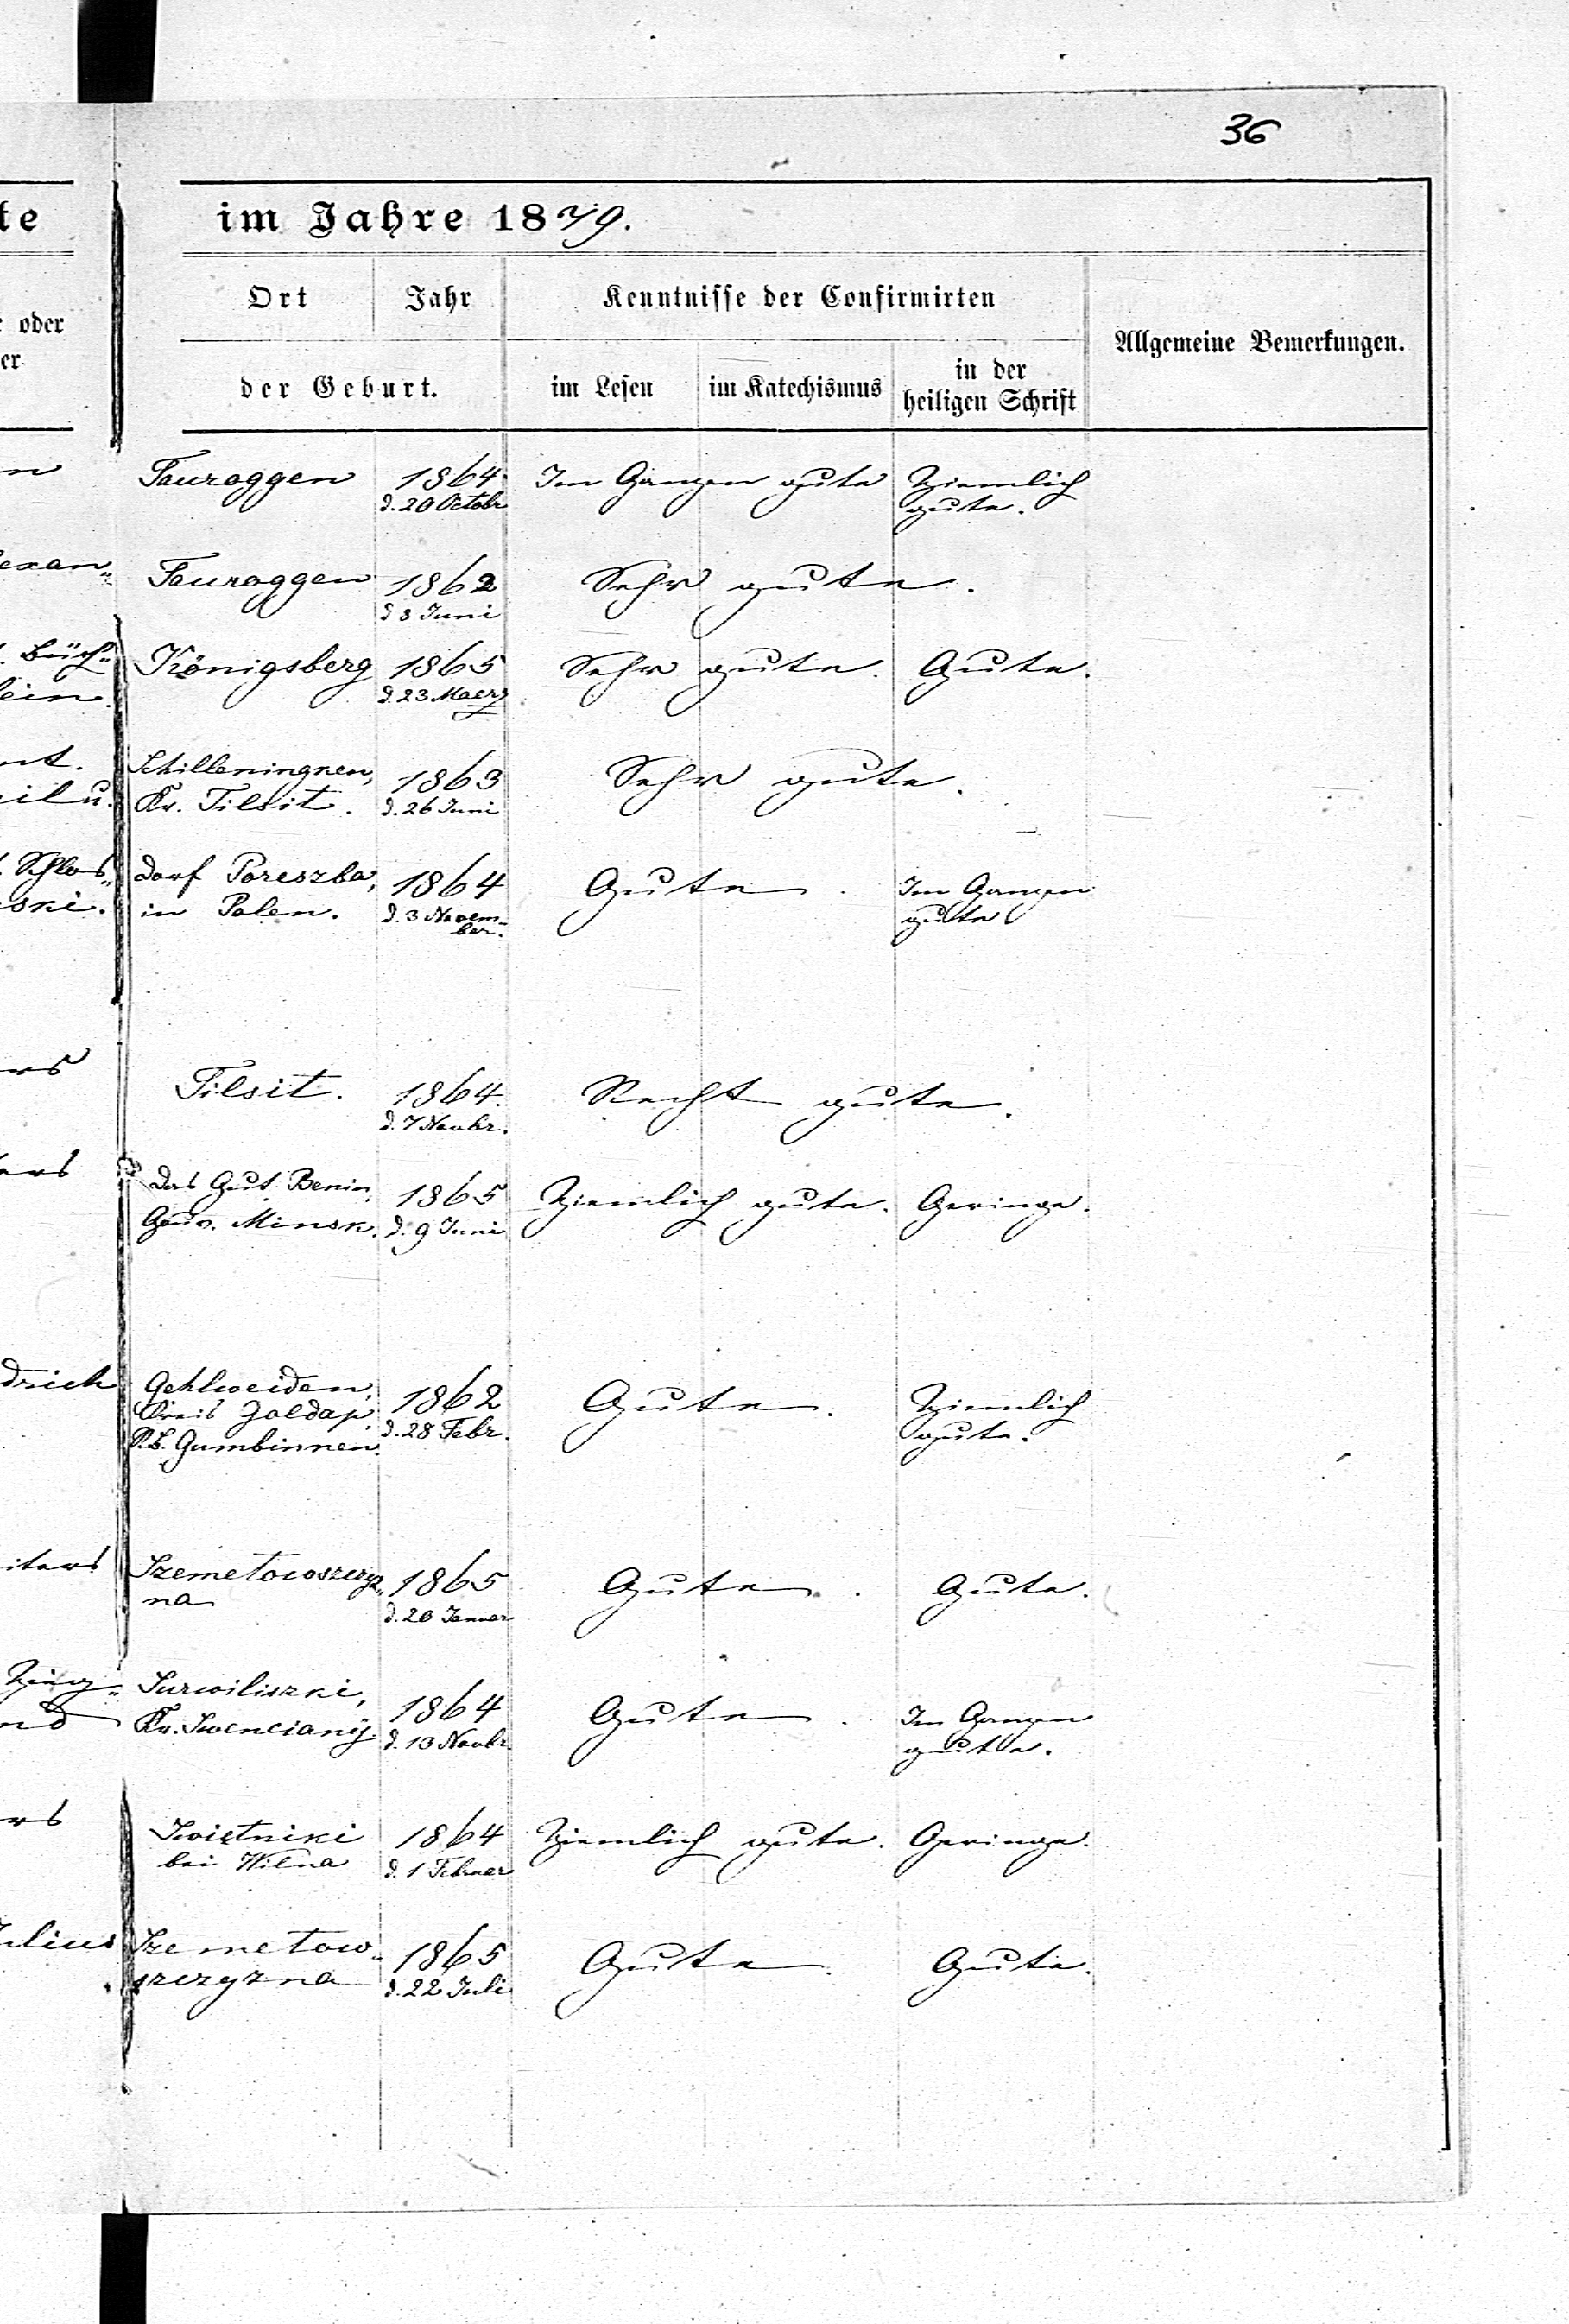 36
te
im Jahre 1879.
Ort Jahr Kenntnisse der Confirmirten
oder
Allgemeine Bemerkungen.
er
der Geburt. im Lesen im Katechismus in der
heiligen Schrift
n Tauroggen 1864 Im Ganzen gute Ziemlich
d. 20 Octobr gute.
exan„ Tauroggen 1862 Sehr gute.
d 8 Juni
Büch„ Königsberg 1865 Sehr gute. Gute.
lein. d. 23 Maerz
nt. Schilleningken, 1863 Sehr gute.
u. Kr. Tilsit. d. 26 Juni
Schlos„ Dorf Poreszba, 1864 Gute. Im Ganzen
ski. in Polen. d. 3 Novem- gute
ber.
rs Tilsit. 1864. Recht gute.
d. 7 Novbr.
ers das Gut Benin, 1865 Ziemlich gute. Geringe.
Gouv. Minsk. d. 9 Juni
drich Gehlweiden, 1862 Gute. Ziemlich
Kreis Goldap, d. 28 Febr. gute.
R.B. Gumbinnen.
iters Szemetowszczyz„ 1865 Gute. Gute.
na d. 20 Januar
Surwiliszki, 1864 Gute. Im Ganzen
nd Kr. Swenciany. d. 13 Novbr. gute.
rs Kwietniki 1864 Ziemlich gute. Geringe.
bei Wilna d. 1 Februar
ulius Szemetow- 1865 Gute. Gute.
szczyzna d. 22 Juli